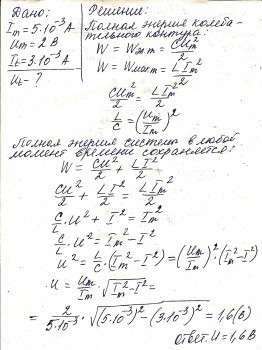 Дано:
I_m = 5·10⁻³ A
U_m = 2 В
I_t = 3·10⁻³ A
U_t - ?
Решение:
Полная энергия колеба-
тельного контура:
W = W_эл m = CU_m²/2
W = W_маг m = LI_m²/2
CU_m²/2 = LI_m²/2
L/C = (U_m/I_m)²
Полная энергия системы в любой
момент времени сохраняется:
W = CU²/2 + LI²/2
CU²/2 + LI²/2 = LI_m²/2
C/L U² + I² = I_m²
C/L U² = I_m² - I²
U² = L/C · (I_m² - I²) = (U_m/I_m)² · (I_m² - I²)
U = U_m/I_m · √(I_m² - I²) =
= 2/(5·10⁻³) · √((5·10⁻³)² - (3·10⁻³)²) = 1,6 (В)
Ответ: U = 1,6 В